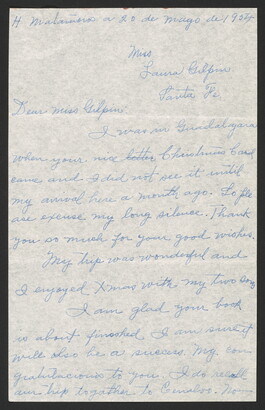 H. Matamoros a 20 de mayo de 1954
Miss
Laura Gilpin
Santa Fe
Dear Miss Gilpin
I was in Guadalajara
when your nice letter Christmas Card
came and I did not see it until
my arrival here a month ago. So ple
ase excuse my long silence. Thank
you so much for your good wishes.
My trip was wonderful and
I enjoyed Xmas with my two sons
I am glad your book
is about finished I am sure it
will also be a success. My con
gratulacions to you. I do recall
our trip together to No-